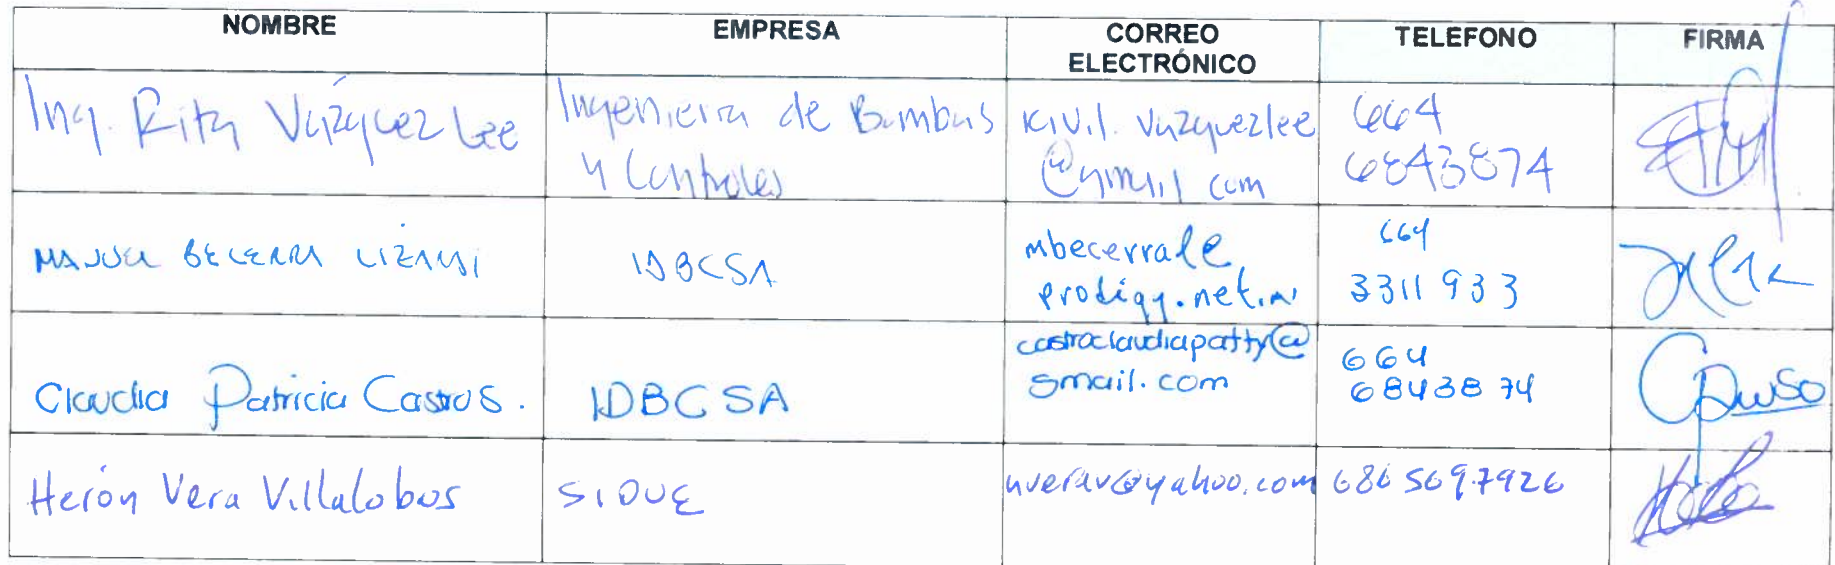 NOMBRE EMPRESA CORREO ELECTRÓNICO TELEFONO FIRMA
Ing. Rita Vázquez Lee Ingenieria de Bombas y Controles vazquezlee @gmail com 664 6843874
MANUEL BECERRA LIZARDI IDBCSA mbecerral@ prodigy.net. 664 3311933
Claudia Patricia Castro S. IDBCSA castroclaudiapatty@ gmail.com 664 6843874
Herón Vera Villalobos SIDUE hverav@yahoo.com 686 5697926